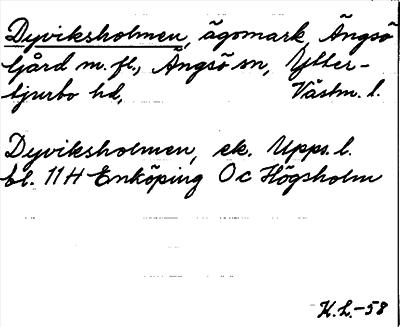 Dyviksholmen, ägomark, Ängsö
Gård m. fl., Ängsö sn, Ytter-
tjurbo hd, Västm. l.
Dyviksholmen, ek. Upps. l.
bl. 11 H Enköping O c Högsholm
H.L.-58